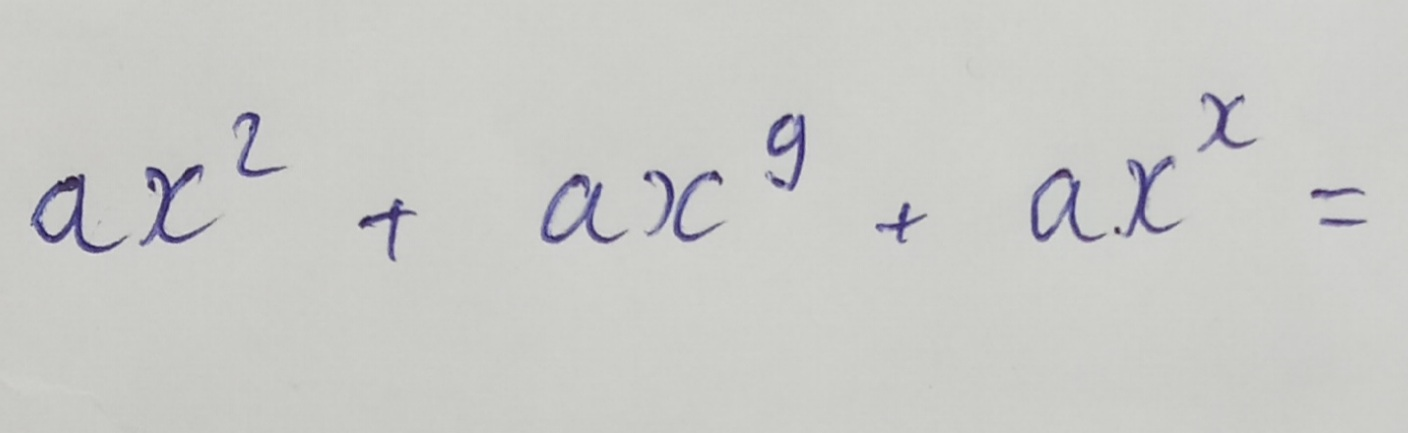 ax² + ax⁹ + axˣ =